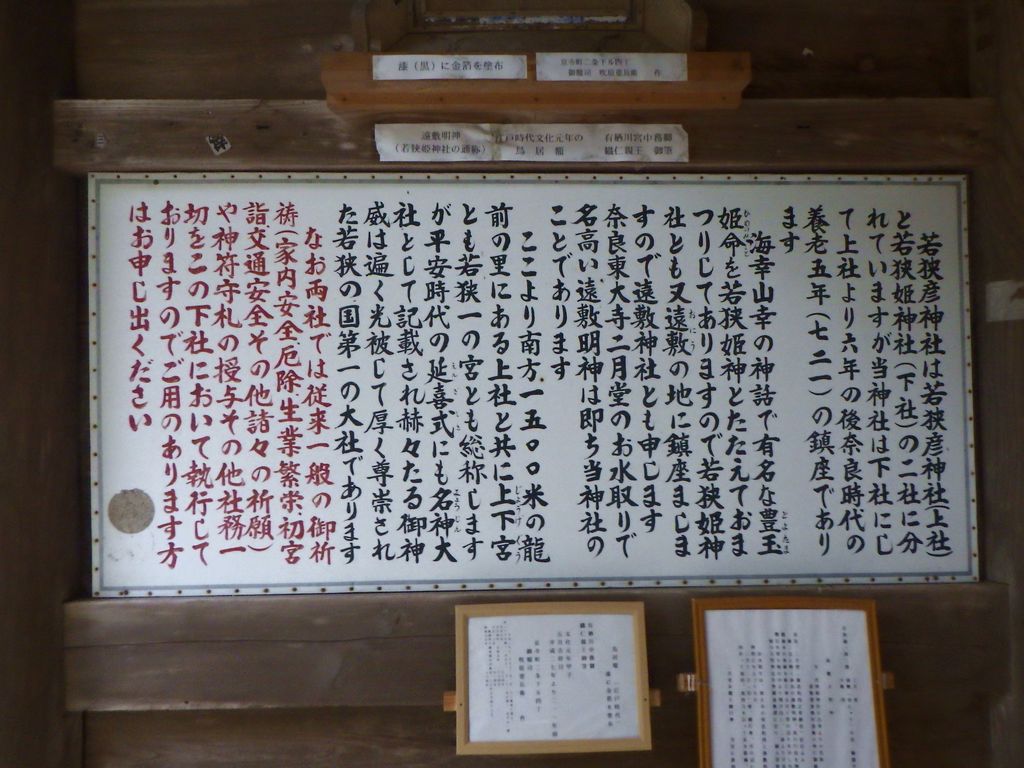 漆(黒)に金箔を塗布
京寺町二条下ル四丁
御額司 牧原亜烏衛 作
遠敷明神
(若狭姫神社の通称)
江戸時代文化元年の
鳥居額
有栖川宮中務卿
織仁親王 御筆
若狭彦神社は若狭彦神社(上社)
と若狭姫神社(下社)の二社に分
れていますが当神社は下社にし
て上社より六年の後奈良時代の
養老五年(七二一)の鎮座であり
ます
海幸山幸の神話で有名な豊玉
姫命を若狭姫神とたたえておま
つりしてありますので若狭姫神
社とも又遠敷の地に鎮座ましま
すので遠敷神社とも申します
奈良東大寺二月堂のお水取りで
名高い遠敷明神は即ち当神社の
ことであります
ここより南方一五〇〇米の龍
前の里にある上社と共に上下宮
とも若狭一の宮とも総称します
が平安時代の延喜式にも名神大
社として記載され赫々たる御神
威は遍く光被して厚く尊崇され
た若狭の国第一の大社であります
なお両社では従来一般の御祈
祷(家内安全厄除生業繁栄初宮
詣交通安全その他諸々の祈願)
や神符守札の授与その他社務一
切をこの下社において執行して
おりますのでご用のあります方
はお申し出ください